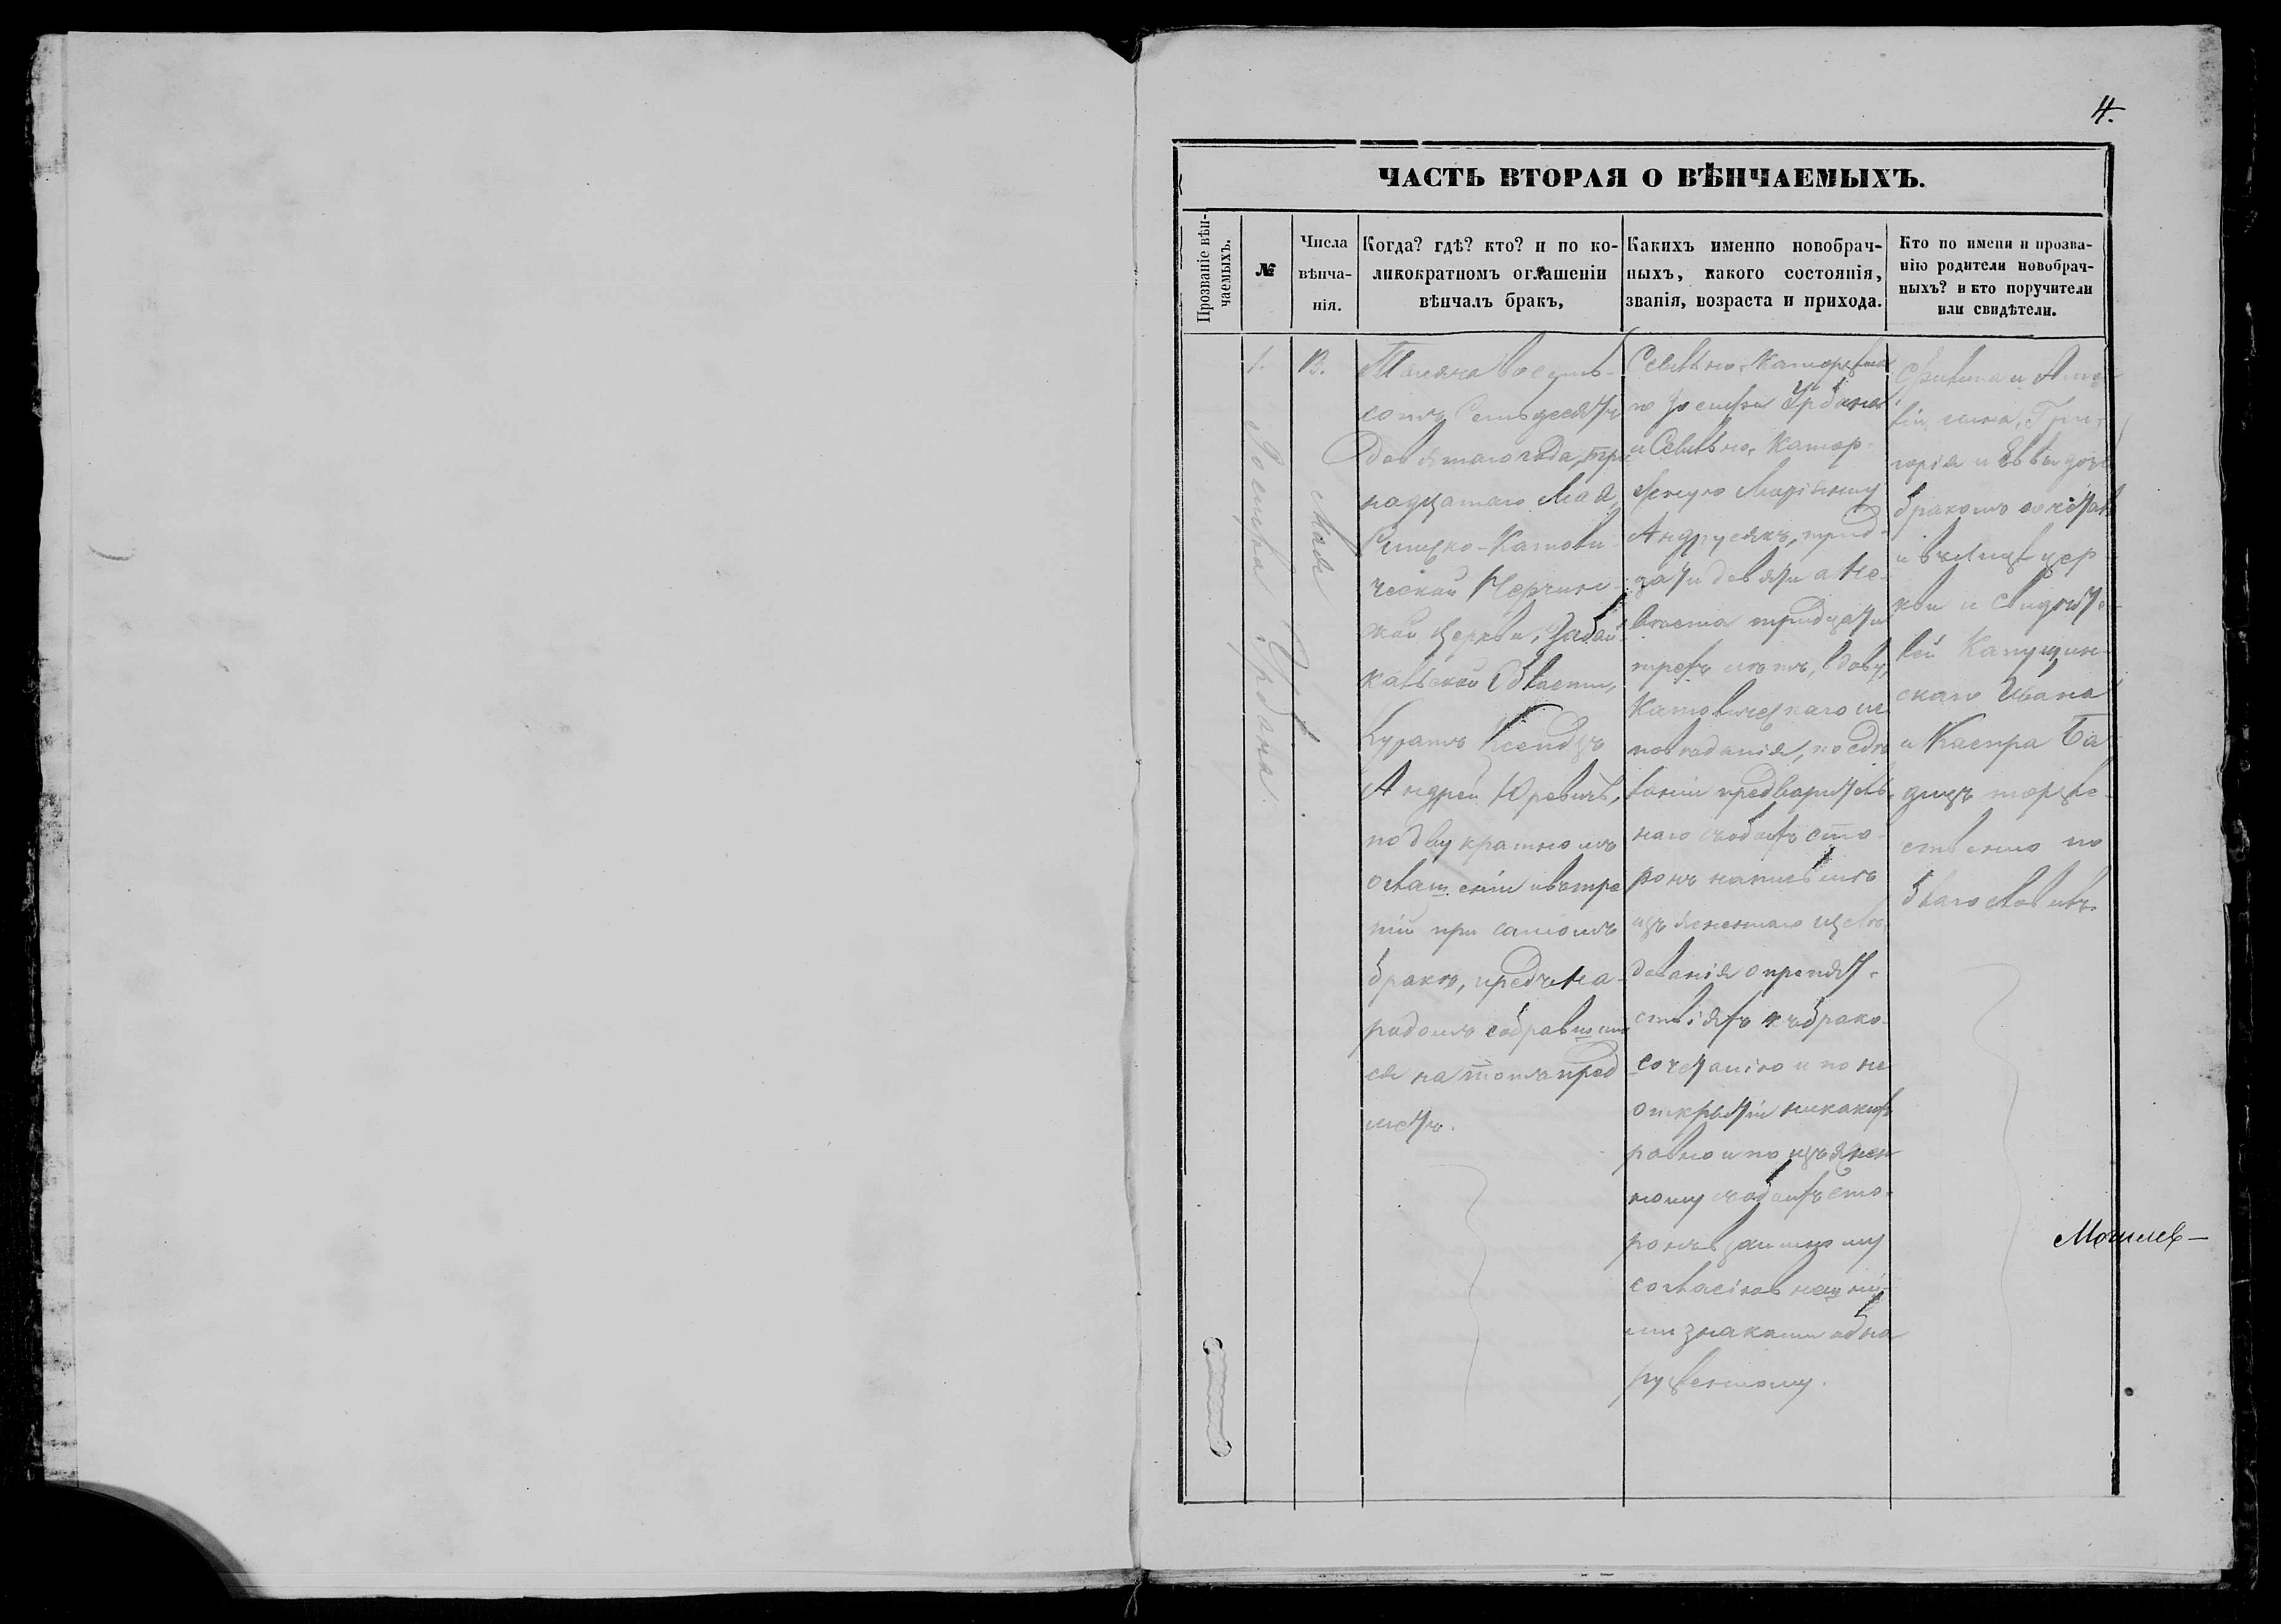 4.
ЧАСТЬ ВТОРАЯ О ВѢНЧАЕМЫХЪ.
Прозваніе вѣн-
чаемыхъ.
№
Числа
вѣнча-
нія.
Когда? гдѣ? кто? и по ко-
ликократномъ оглашеніи
вѣнчалъ бракъ,
Какихъ именно новобрач-
ныхъ, какого состоянія,
званія, возраста и прихода.
Кто по имени и прозва-
нію родители новобрач-
ныхъ? и кто поручители
или свидѣтели.
Іосифа Урбана.
1.
13.
Мая
Тысяча восемь-
сотъ Семьдесятъ
девятаго года, три
надцатаго Мая,
Римско-Католи-
ческой Нерчинс-
кой Церкви, Забай-
кальской Области,
Куратъ Ксендзъ
Андрей Юревичъ,
по двукратномъ
оглашеніи и въ тре
тій при самомъ
бракѣ, предъ На-
родомъ собравшим
ся на тотъ пред
метъ.
Сильно-Каторжна
го Іосифа Урбана
и Сильно-Катор-
жную Маріанну
Андрусякъ, трид-
цати девяти а Не-
вѣста тридцати
трехъ лѣтъ, вдову,
Католическаго ис
повѣданія, по слѣ
ланіи предваритель
наго съ обѣихъ сто-
ронъ написьмѣ
изъясненнаго изслѣ
дованія о препят-
ствіяхъ къ брако-
сочетанію и по не
открытіи никакихъ
равно и по изъяснен
ному съ обѣихъ сто-
ронъ взаимному
согласію внешни-
ми знаками обна
руженному.
Филипа и
сына, Гри-
горія и Еввы дочь
бракомъ сочеталъ
и въ лицѣ цер
кви и свидѣте-
лей
скаго Ивана
и Каспра Ба
торже-
ственно по
благословилъ.